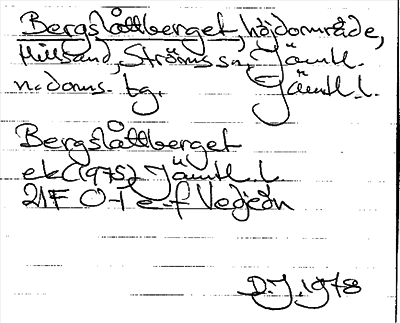 Bergslåttberget, höjdområde,
Hillsand, Ströms sn, Jämtl.
n.doms. tg. Jämtl. l.
Bergslåttberget
ek (1975) Jämtl. l.
21F 0-1 e-f Vedjeön
D.J. 1978